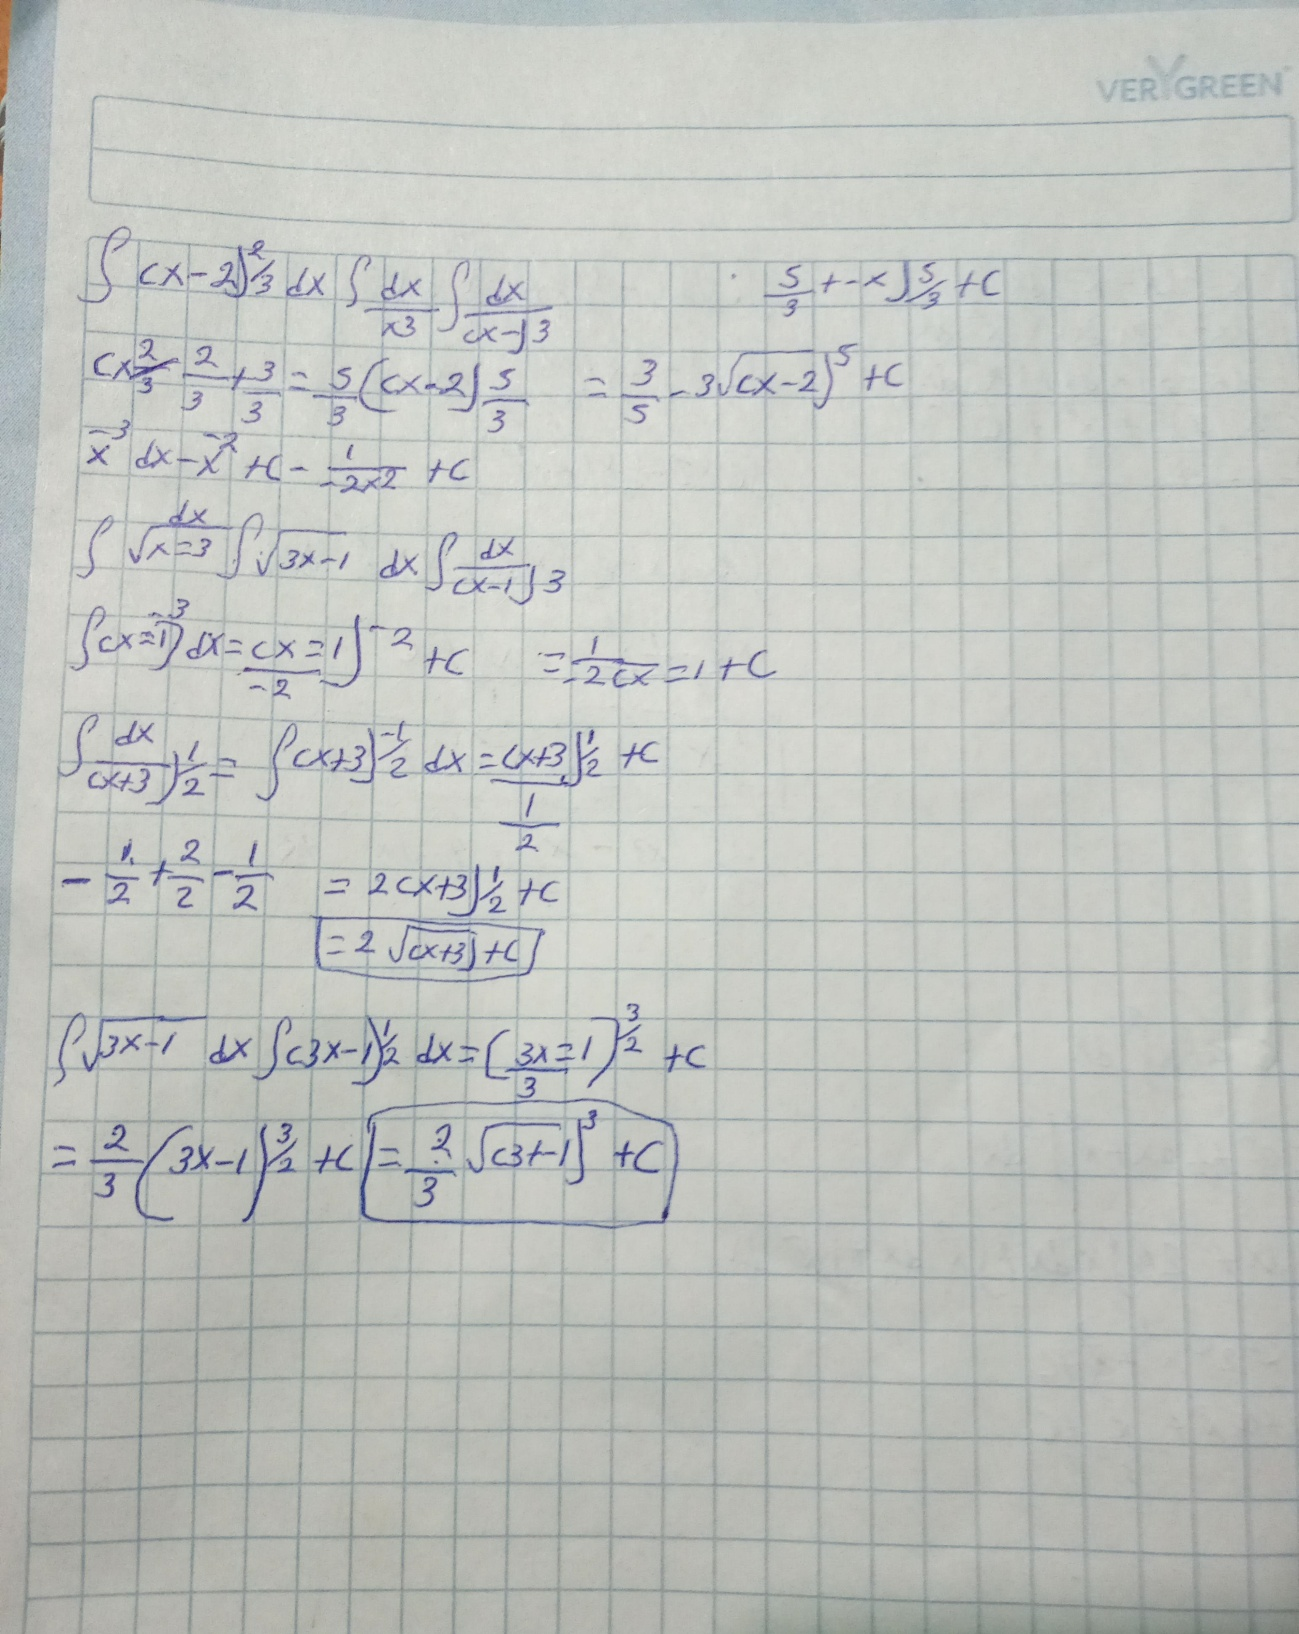 VERYGREEN
∫ (x-2)^2/3 dx ∫ dx/x3 ∫ dx/(x-)3 5/3 +-x)5/3 +C
2/3 + 3/3 = 5/3 ((x-2) 5/3 = 3/5 - 3√(x-2)^5 +C
x^-3 dx - x^-2 +C - 1/-2x2 +C
∫ dx/√x=3 ∫ √3x-1 dx ∫ dx/(x-1)3
∫(x=1)^-3 dx = (x=1)^-2/-2 +C = 1/-2(x =1 +C
∫ dx/(x+3)1/2 = ∫(x+3)^-1/2 dx = (x+3)^1/2 / 1/2 +C
- 1/2 + 2/2 - 1/2 = 2(x+3)1/2 +C
= 2 √(x+3) +C
∫√3x-1 dx ∫(3x-1)^1/2 dx = (3x=1/3)^3/2 +C
= 2/3 (3x-1)^3/2 +C = 2/3 √(3+-1)^3 +C